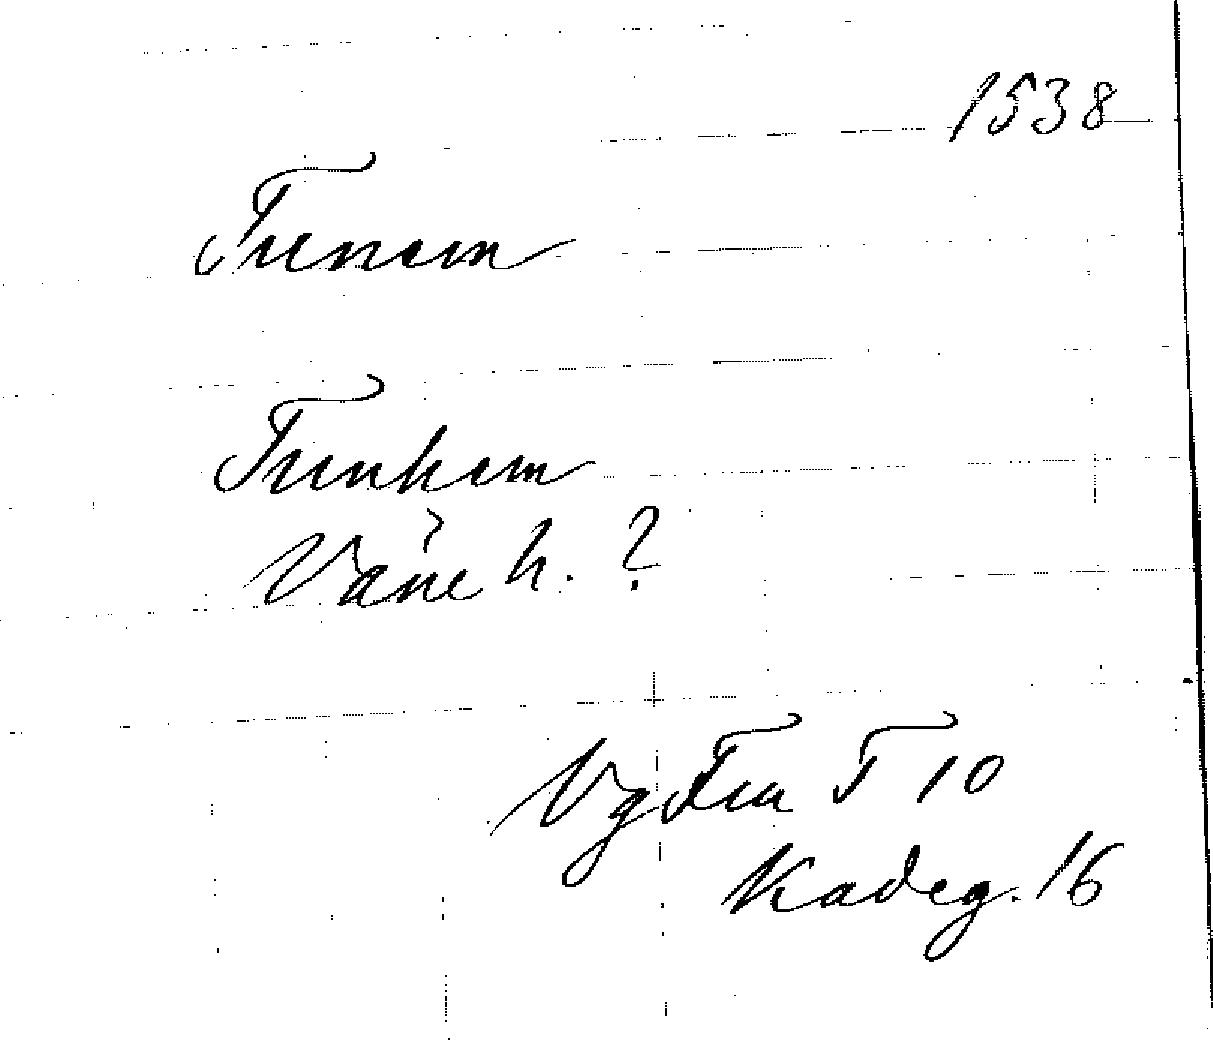 1538
Tunem
Tunhem
Väne h. ?
Vg T 10
Kadeg. 16